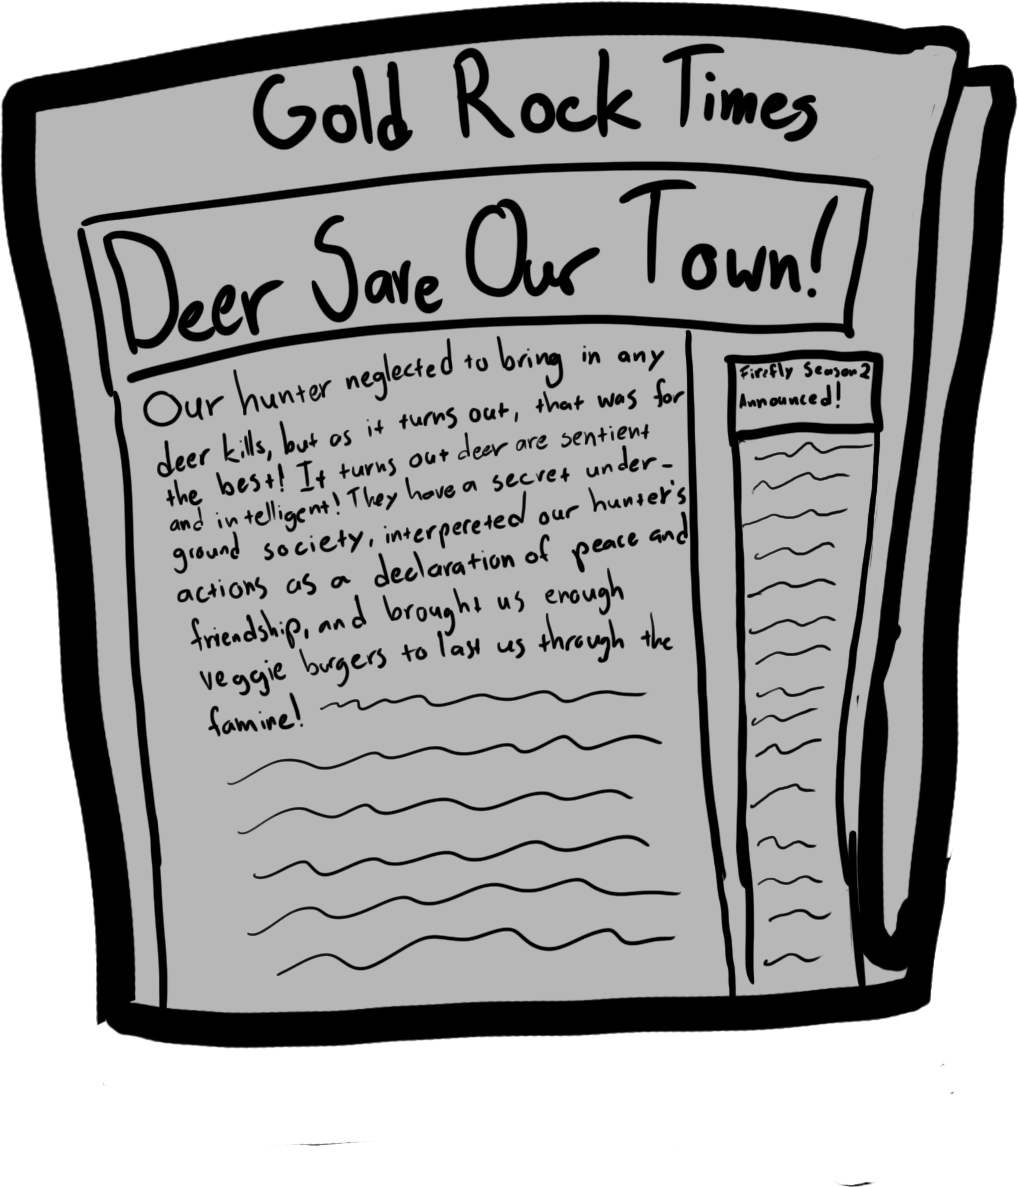 Gold Rock Times
Deer Save Our Town!
Our hunter neglected to bring in any
deer kills, but as it turns out, that was for
the best! It turns out deer are sentient
and intelligent! They have a secret under-
ground society, interpereted our hunter's
actions as a declaration of peace and
friendship, and brought us enough
veggie burgers to last us through the
famine!
Firefly Season 2
Announced!